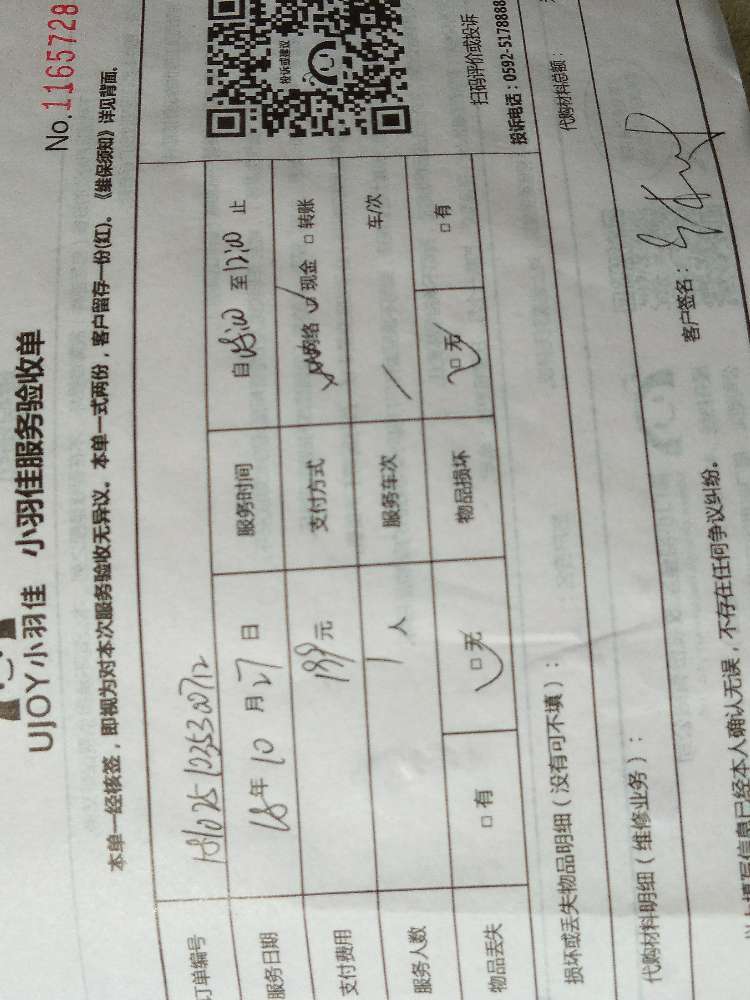 UJOY小羽佳 小羽佳服务验收单
No.1165728
本单一经核签，即视为对本次服务验收无异议。本单一式两份，客户留存一份(红)。《维保须知》详见背面.
订单编号
服务日期 18年10月27日 服务时间 自08:00至12:00止
支付费用 199元 支付方式 网络 现金 □转账
服务人数 1人 服务车次 / 车/次
物品丢失 □有 □无 物品损坏 □无 □有
投诉或建议
扫码评价或投诉
投诉电话：0592-5178888
损坏或丢失物品明细（没有可不填）：
代购材料明细（维修业务）：
代购材料总额：
填写信息已经本人确认无误，不存在任何争议纠纷。
客户签名：